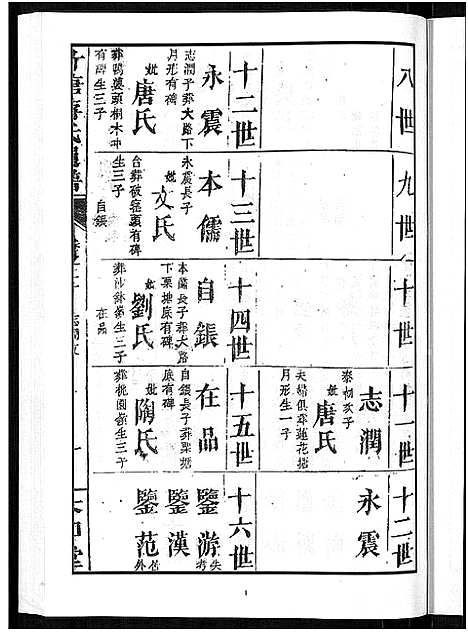 八世
九世
十世
十一世
志潤
泰初次子
妣唐氏
夫婦俱葬蓮花塘
月形生一子
十二世
永震
十二世
永震
志潤子葬大路下
月形有碑
妣唐氏
葬鴨婆頭桐木冲
有碑生三子
十三世
本儒
永震長子
妣文氏
台葬破塞頭有碑
生三子
自鋹
十四世
自鋹
本儒長子葬大路
下栗塘底有碑
妣劉氏
葬沙
生三子
在品
十五世
在品
自鋹長子葬栗塘
底有碑
妣陶氏
葬桃園
生三子
十六世
鑒游失考
鑒漢
鑒范
外
氏通譜
1